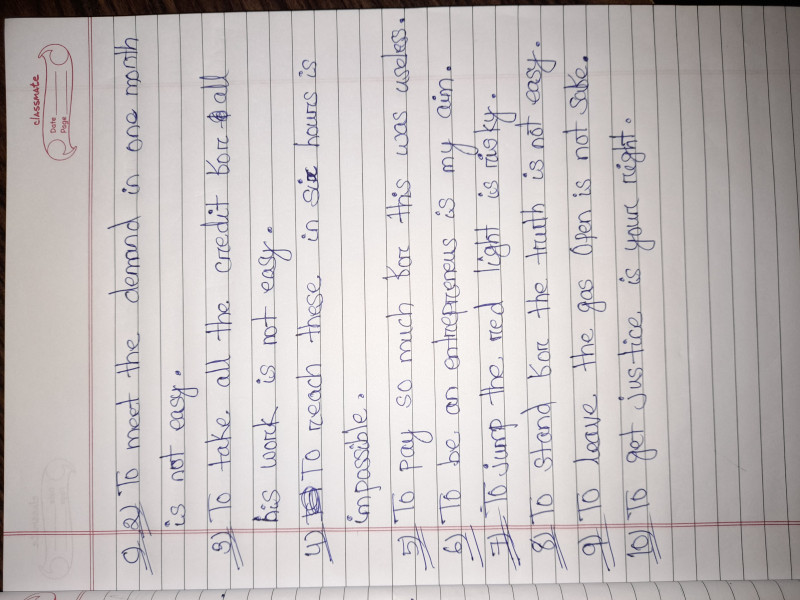 classmate
Date
Page
Q.2) To meet the demand in one month
is not easy.
3) To take all the credit for all
his work is not easy.
4) To reach these in six hours is
impossible.
5) To pay so much for this was useless.
6) To be an entrepreneus is my aim.
7) To jump the red light is risky.
8) To stand for the truth is not easy.
9) To leave the gas open is not safe.
10) To get justice is your right.